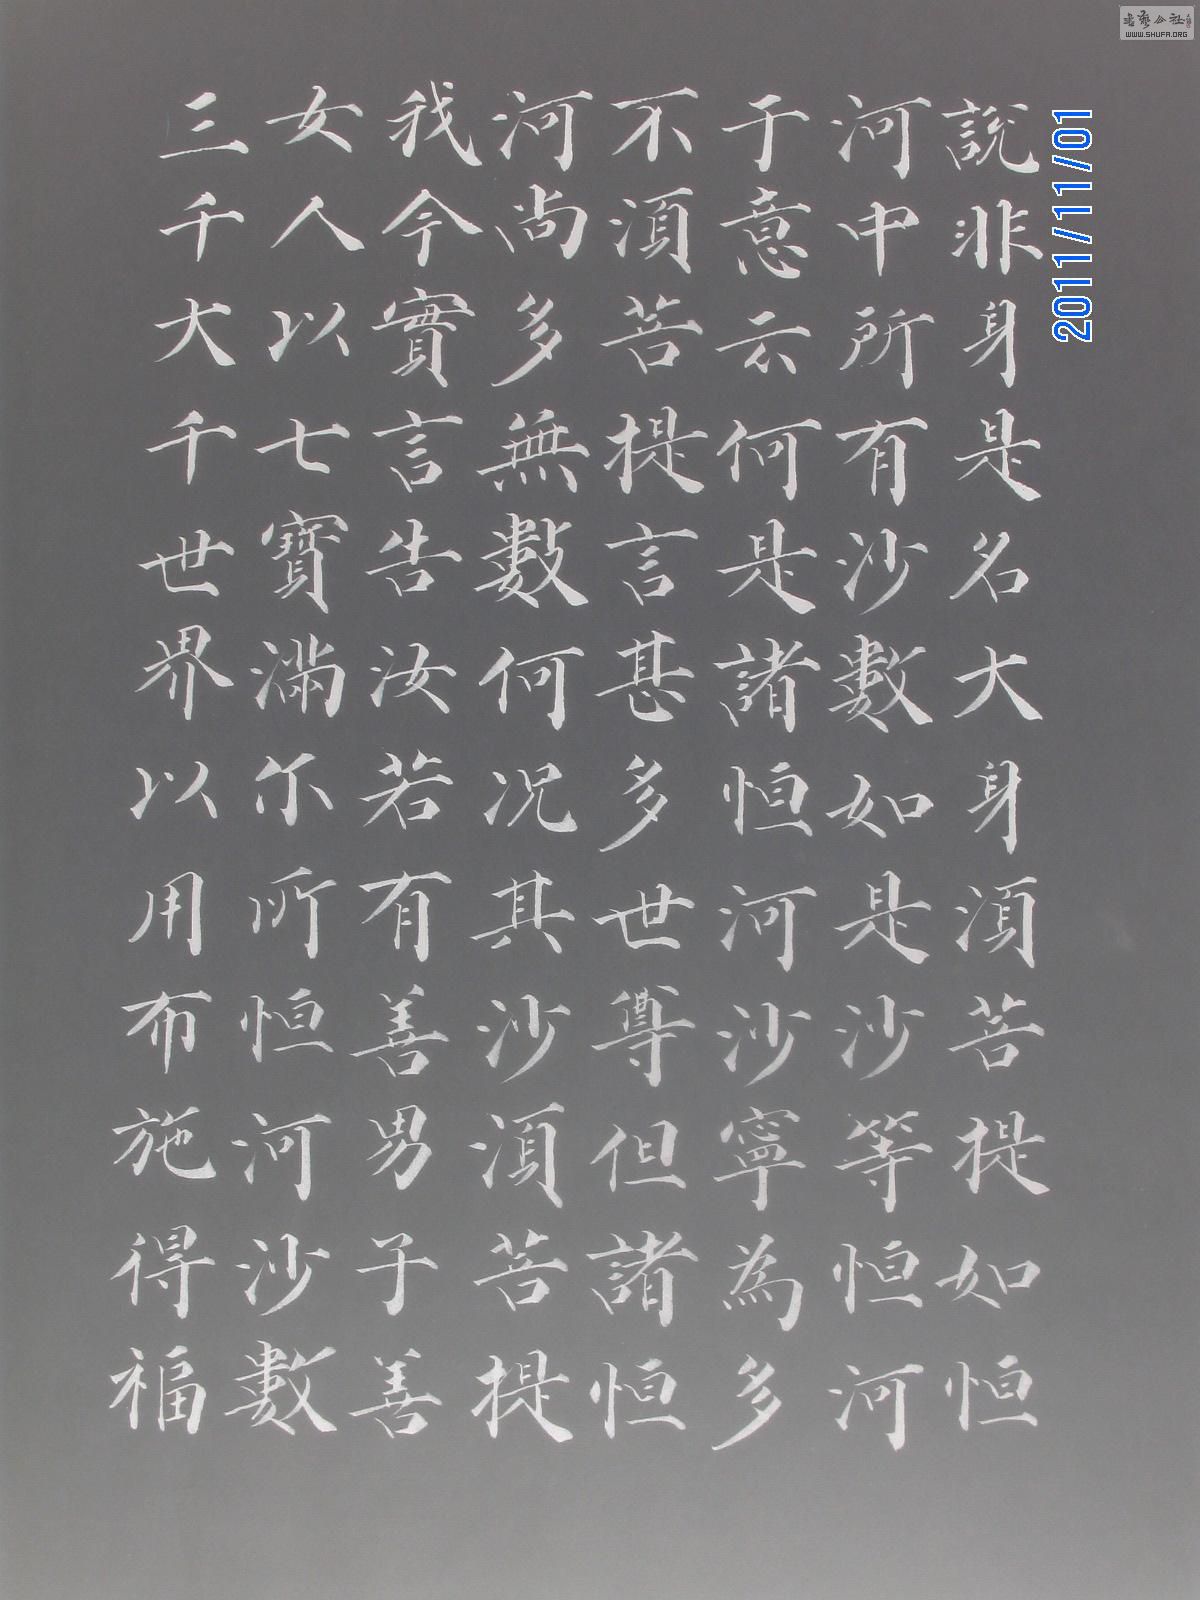 說非身是名大身須菩提如恒
河中所有沙數如是沙等恒河
于意云何是諸恒河沙寧為多
不須菩提言甚多世尊但諸恒
河尚多無數何況其沙須菩提
我今實言告汝若有善男子善
女人以七寶滿尒所恒河沙數
三千大千世界以用布施得福
2011/11/01
WWW.SHUFA.ORG